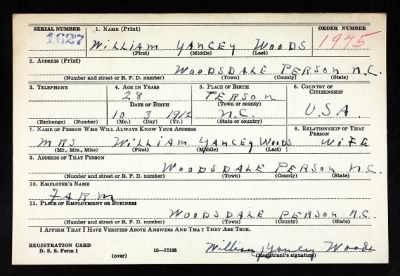 SERIAL NUMBER 1. NAME (Print) ORDER NUMBER
1627 WILLIAM YANCEY WOODS 1975
(First) (Middle) (Last)
2. ADDRESS (Print)
WOODSDALE PERSON N.C.
(Number and street or R. F. D. number) (Town) (County) (State)
3. TELEPHONE 4. AGE IN YEARS 5. PLACE OF BIRTH 6. COUNTRY OF CITIZENSHIP
28 PERSON
(Town or county)
DATE OF BIRTH
10 3 1912 N.C. U.S.A.
(Exchange) (Number) (Mo.) (Day) (Yr.) (State or country)
7. NAME OF PERSON WHO WILL ALWAYS KNOW YOUR ADDRESS 8. RELATIONSHIP OF THAT PERSON
MRS WILLIAM YANCEY WOODS WIFE
(Mr., Mrs., Miss) (First) (Middle) (Last)
9. ADDRESS OF THAT PERSON
WOODSDALE PERSON N.C.
(Number and street or R. F. D. number) (Town) (County) (State)
10. EMPLOYER'S NAME
FARM
11. PLACE OF EMPLOYMENT OR BUSINESS
WOODSDALE PERSON N.C.
(Number and street or R. F. D. number) (Town) (County) (State)
I AFFIRM THAT I HAVE VERIFIED ABOVE ANSWERS AND THAT THEY ARE TRUE.
REGISTRATION CARD
D. S. S. Form 1 (over) 16—17105 William Yancey Woods
(Registrant's signature)